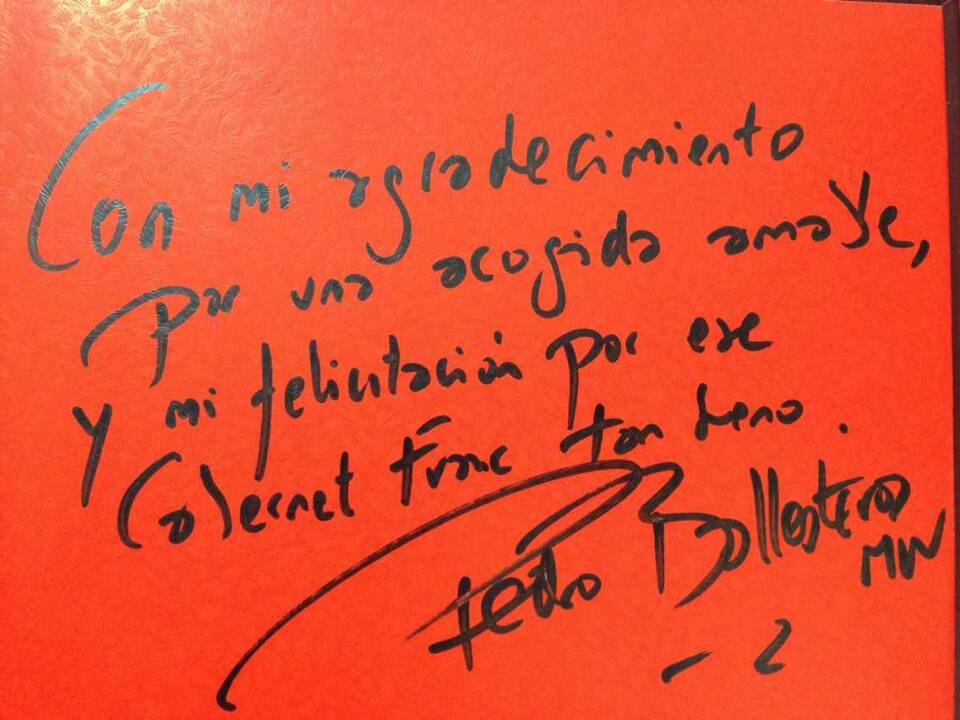 Con mi agradecimiento
Por una acogida amable,
y mi felicitación por ese
Cabernet Franc tan bueno.
Pedro Ballesteros
MW